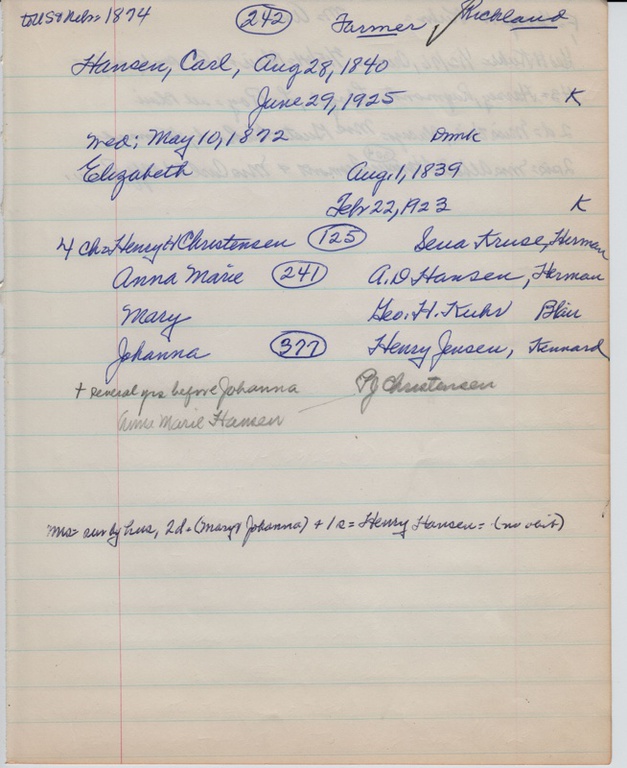 to US & Nebr = 1874 (242) Farmer, Richland
Hansen, Carl, Aug 28, 1840
June 29, 1925 K
Wed; May 10, 1872 Dmk
Elizabeth Aug. 1, 1839
Feb 22, 1923 K
4 Ch = Henry H Christensen (125) Sena Kruse, Herman
Anna Marie (241) A.D Hansen, Herman
Mary Geo. H. Kuhr Blair
Johanna (377) Henry Jensen, Kennard
+ several yrs before Johanna Christensen
Anne Marie Hansen
Mrs = sur by hus, 2d = (Mary & Johanna) + 1 s = Henry Hansen = (no obit)